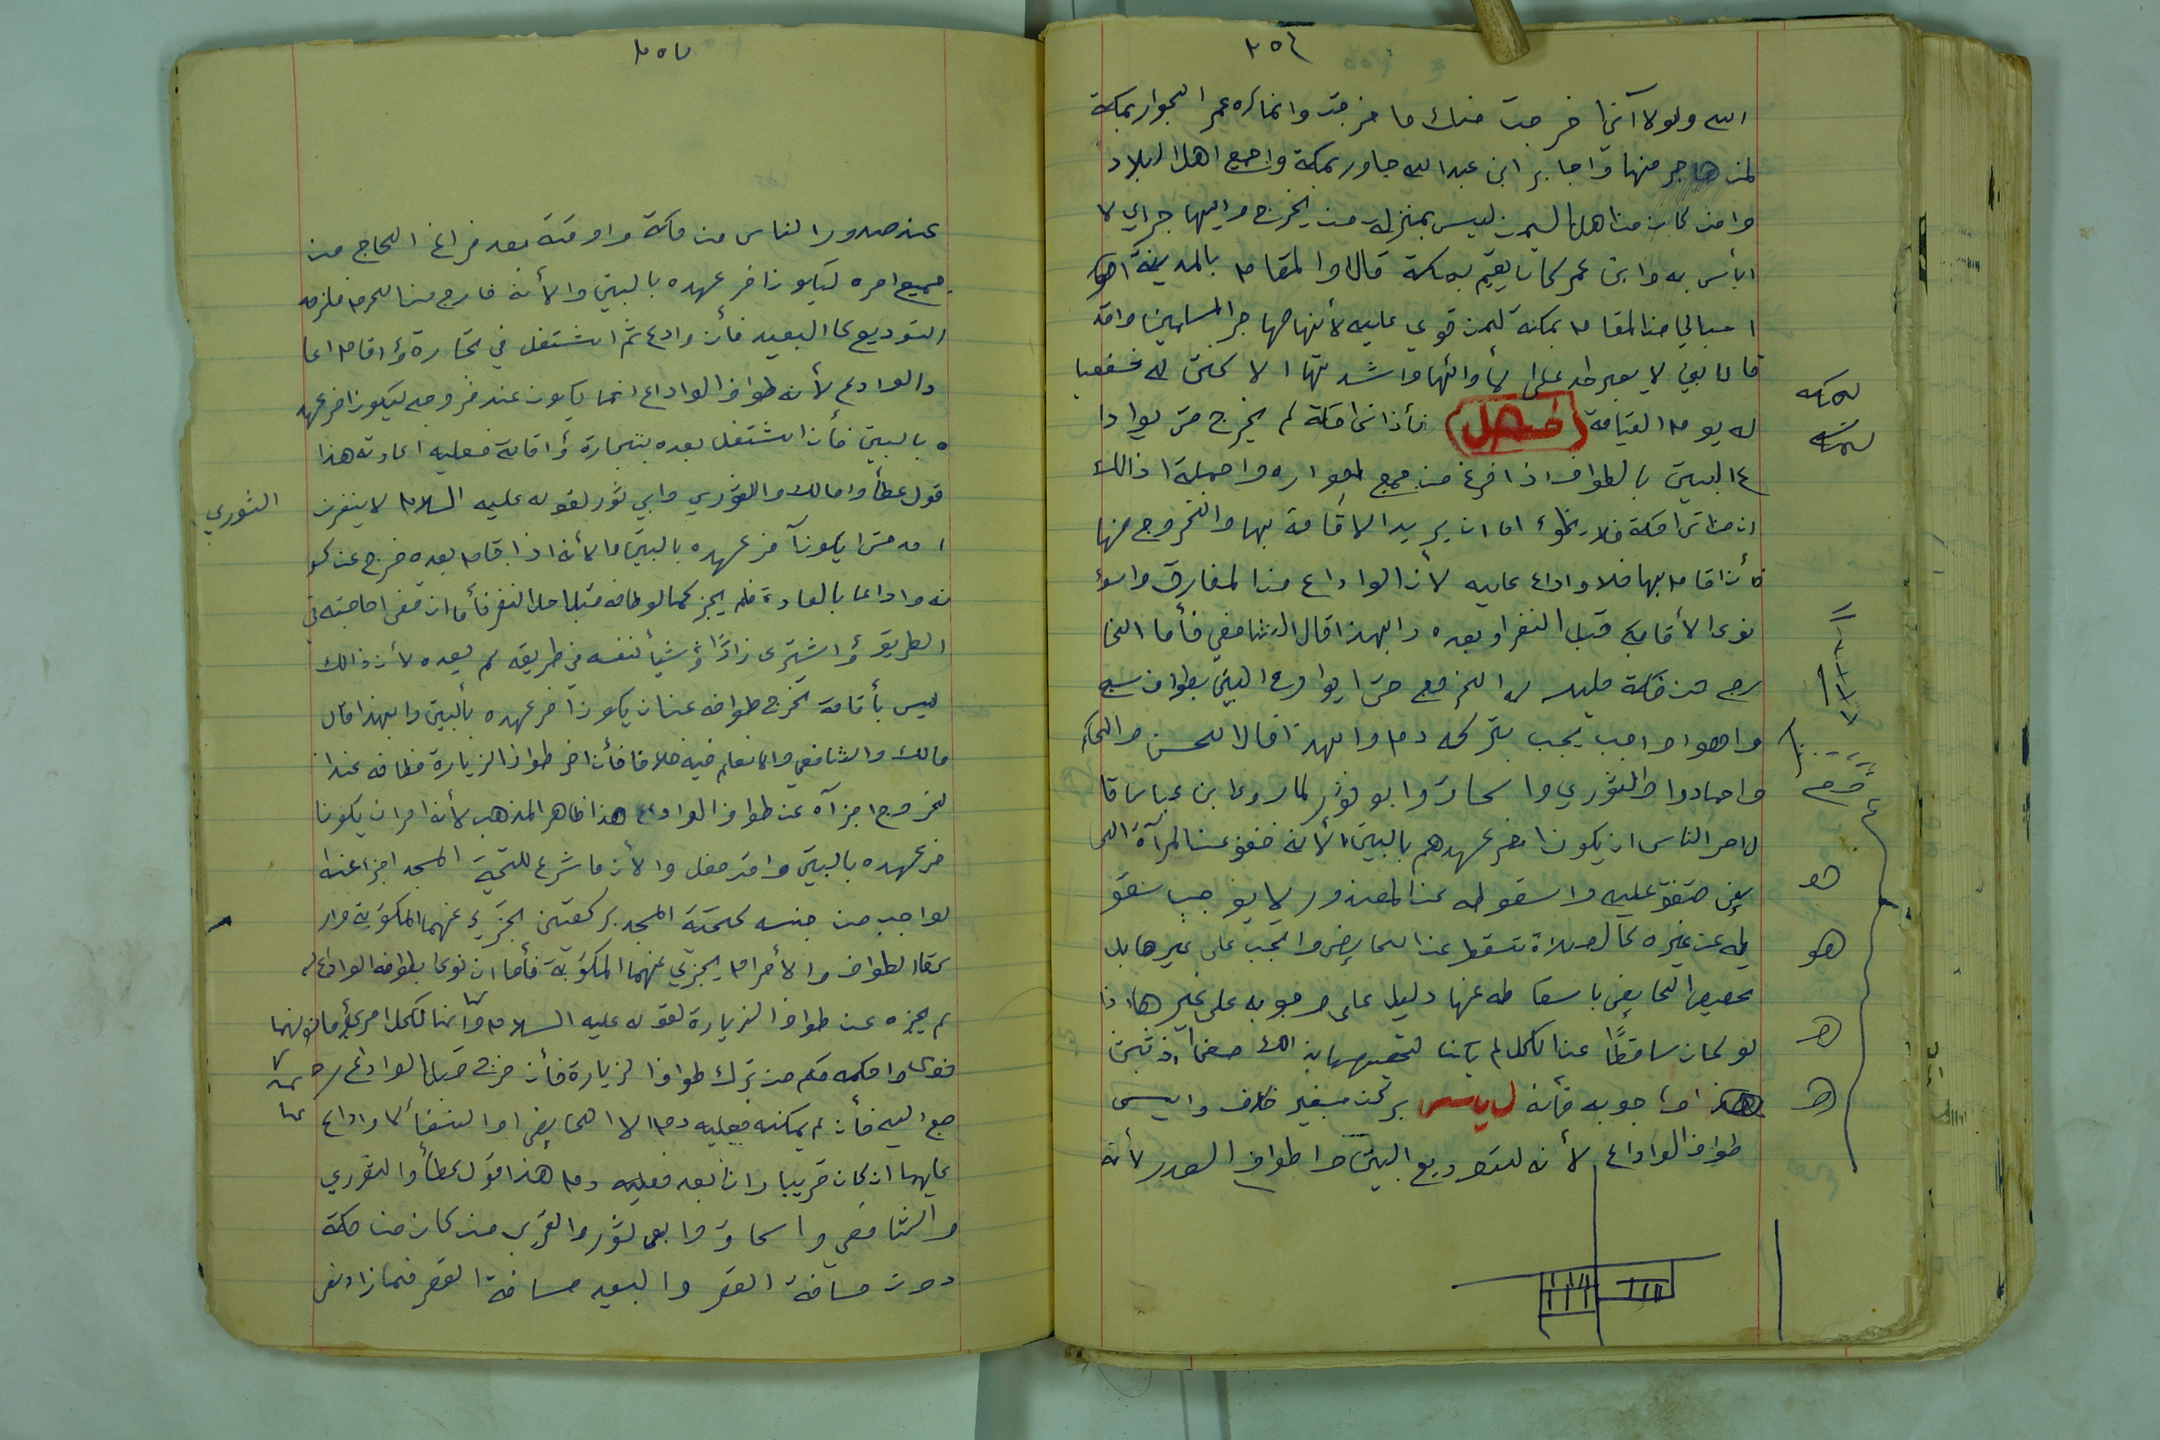 ٣٥٦
الله ولولا آني خرجت منك ما خرجت وانما كره عمر الجوار بمكة
لمن هاجر منها واجابر ابن عبد الله جاور بمكة واجميع اهل البلاد
وا من كان من اهل اليمن ليس بمنزلة من يخرج وايهاجر اي لا
ابأس به وابن عمر كان يقيم بمكة قال والمقام بالمدينة احب
احبالي من المقام بمكة لمن قوي عليه لأنها مهاجر المسلمين واقد
قال لايصبر احد على لأوائها واشدتها الا كنت له شفعيا
له يوم القيامة فصل فأذا اتى مكة لم يخرج حتى يوادا
ع البيت بالطواف اذا فرغ من جميع اموره واجملة اذالك
ان من اتى مكة فلا يخلوء اما ان يريد الاقامة بها والخروج منها
فأن اقام بها فلا واداع عليه لأن الواداع من المفارق واسوء
نوى الأقامة قبل النفر او بعده وابهذا قال الشافعي فأما الخا
رج من مكة فليس له الخروج حتى ايوادع البيت بطواف سبع
واهوا واجب يجب بتركه دم وابهذا قال الحسن والحكم
واحمادوا والثوري واسحاق وابو ثور لما روى ابن عباس قا
ل امر الناس ان يكون اخر عهدهم بالبيت الأنه خفف عن المرآة الحا
يض متفق عليه واسقوطه عن المعذور لا يوجب سقو
طه عن غيره كالصلاة تسقط عن الحايض واتجب على غيرها بل
تخصيص الحايض باسقاطه عنها دليل على وجوبه على غيرها اذ
لو كان ساقطًا عن الكل لم يكن لتخصيصها بذالك معنى اذ ثبت
هذا وجوبه فأنه ليس بركن بغير خلاف وايسمى
طواف الواداع لأنه لتوديع البيت واطواف الصدر لأنه
لمكة
لمكة
هو
هو
هـ
هـ
٣٥٧
عند صدور الناس من مكة واوقته بعد فراغ الحاج من
جميع امره ليكون اخر عهده بالبيت والأنه خارج من الحرم فلزمه
التوديع كا البعيد فأن وادع ثم اشتغل في تجارة وأقام اعا
دالوادع لأنه طواف الواداع انما يكون عند خروجه ليكون اخر عهد
ه بالبيت فأن اشتغل بعده بتجارة وأقامة فعليه اعادته هذا
قول عطأ وامالك والثوري وابي ثور لقوله عليه السلام لا ينفرن
احد حتى ايكون آخر عهده بالبيت والأنه اذا اقام بعده خرج عن كو
نه واداعا بالعادة فلم يجز كما لوطافه قبل حل النفر فأما ان قضى احاجته في
الطريق وأ اشترى زادًا وأ شيأ لنفسه في طريقه لم يعده لأن ذالك
ليس بأقامة تخرج طوافه عن ان يكون اخر عهده بألبيت وابهذا قال
مالك والشافعي والا نعلم فيه خلافا فأن اخر طواف الزيارة فطافه عند ا
لخروج اجزآه عن طواف الوادع هذا ظاهر المذهب لأنه امر ان يكون ا
خر عهده بالبيت واقد فعل والأن ما شرع للتحية المسجد اجزا عنه
لواجب من جنسه كتحية المسجد بركعتين تجزيء عنهما المكتوبة وار
كعتا الطواف والأحرام يجزي عنهما المكتوبة فأما ان نوى ابطوافه الوادع
لم يجزه عن طواف الزيارة لقوله عليه السلام وأنما لكل امرىء ما
نوى واحكمه حكم من ترك طواف الزيارة فأن خرج قبل الوادع ر
جع اليه فأن لم يمكنه فعليه دم الا الحايض او النفسأ لا واداع
عليهما ان كان قريبا وان بعد فعليه دم هذا قول عطأ والثوري
والشافعي واسحاق وابي ثور والقريب من كان من مكة
دون مسافة القصر والبعيد مسافة القصر فما زاد نص
الثوري